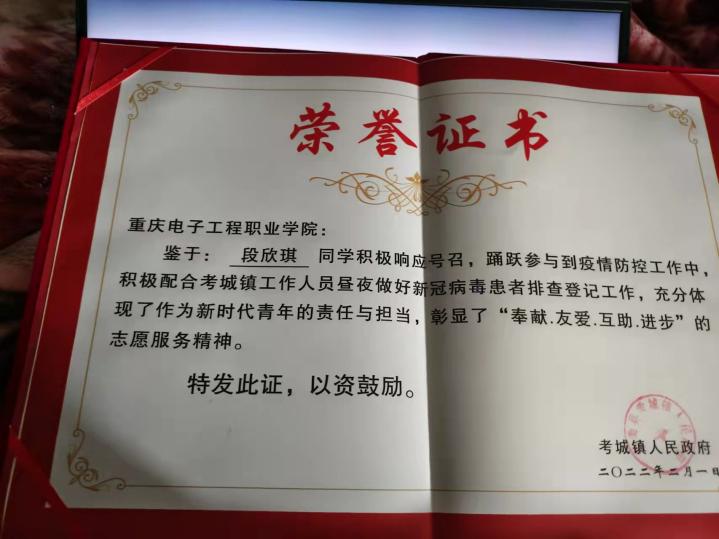 荣誉证书
重庆电子工程职业学院：
鉴于： 段欣琪 同学积极响应号召，踊跃参与到疫情防控工作中，
积极配合考城镇工作人员昼夜做好新冠病毒患者排查登记工作，充分体
现了作为新时代青年的责任与担当，彰显了“奉献.友爱.互助.进步”的
志愿服务精神。
特发此证，以资鼓励。
考城镇人民政府
二〇二二年二月一日